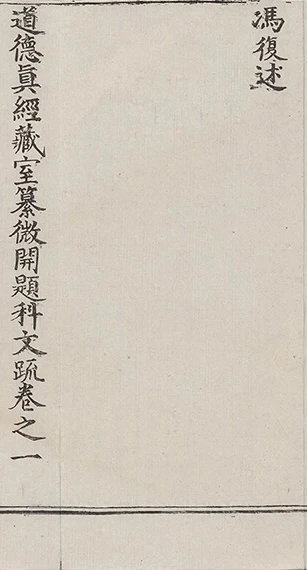 馮復述
道德眞經藏室纂微開題科文䟽卷之一